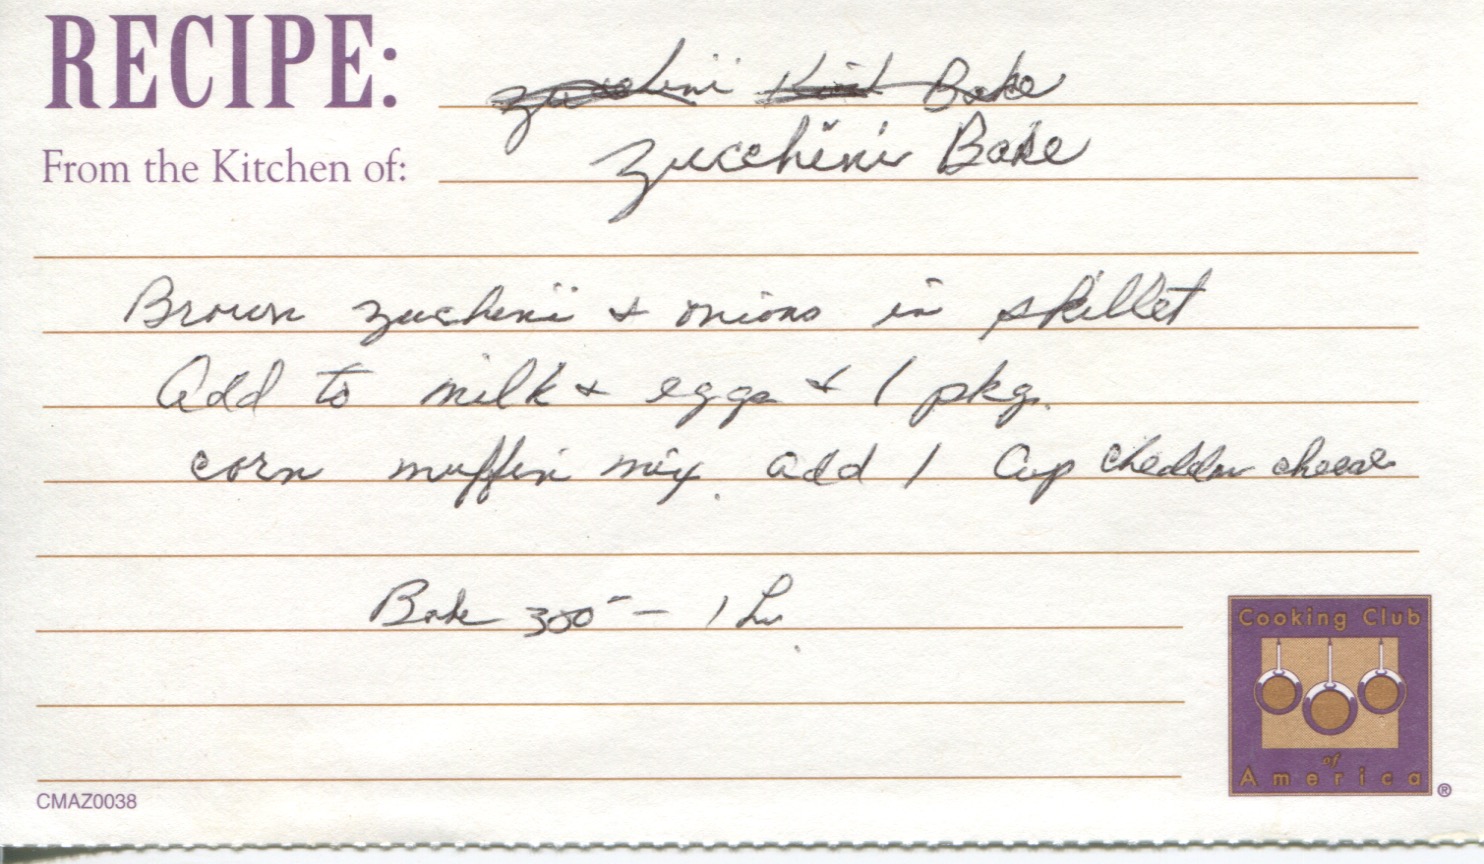 RECIPE:
zucchini Bake
From the Kitchen of:
Zucchini Bake
Brown zuchini & onions in skillet
Add to milk & eggs & 1 pkg.
corn muffin mix. add 1 Cup cheddar cheese
Bake 300° - 1 hr.
Cooking Club
of
America
®
CMAZ0038